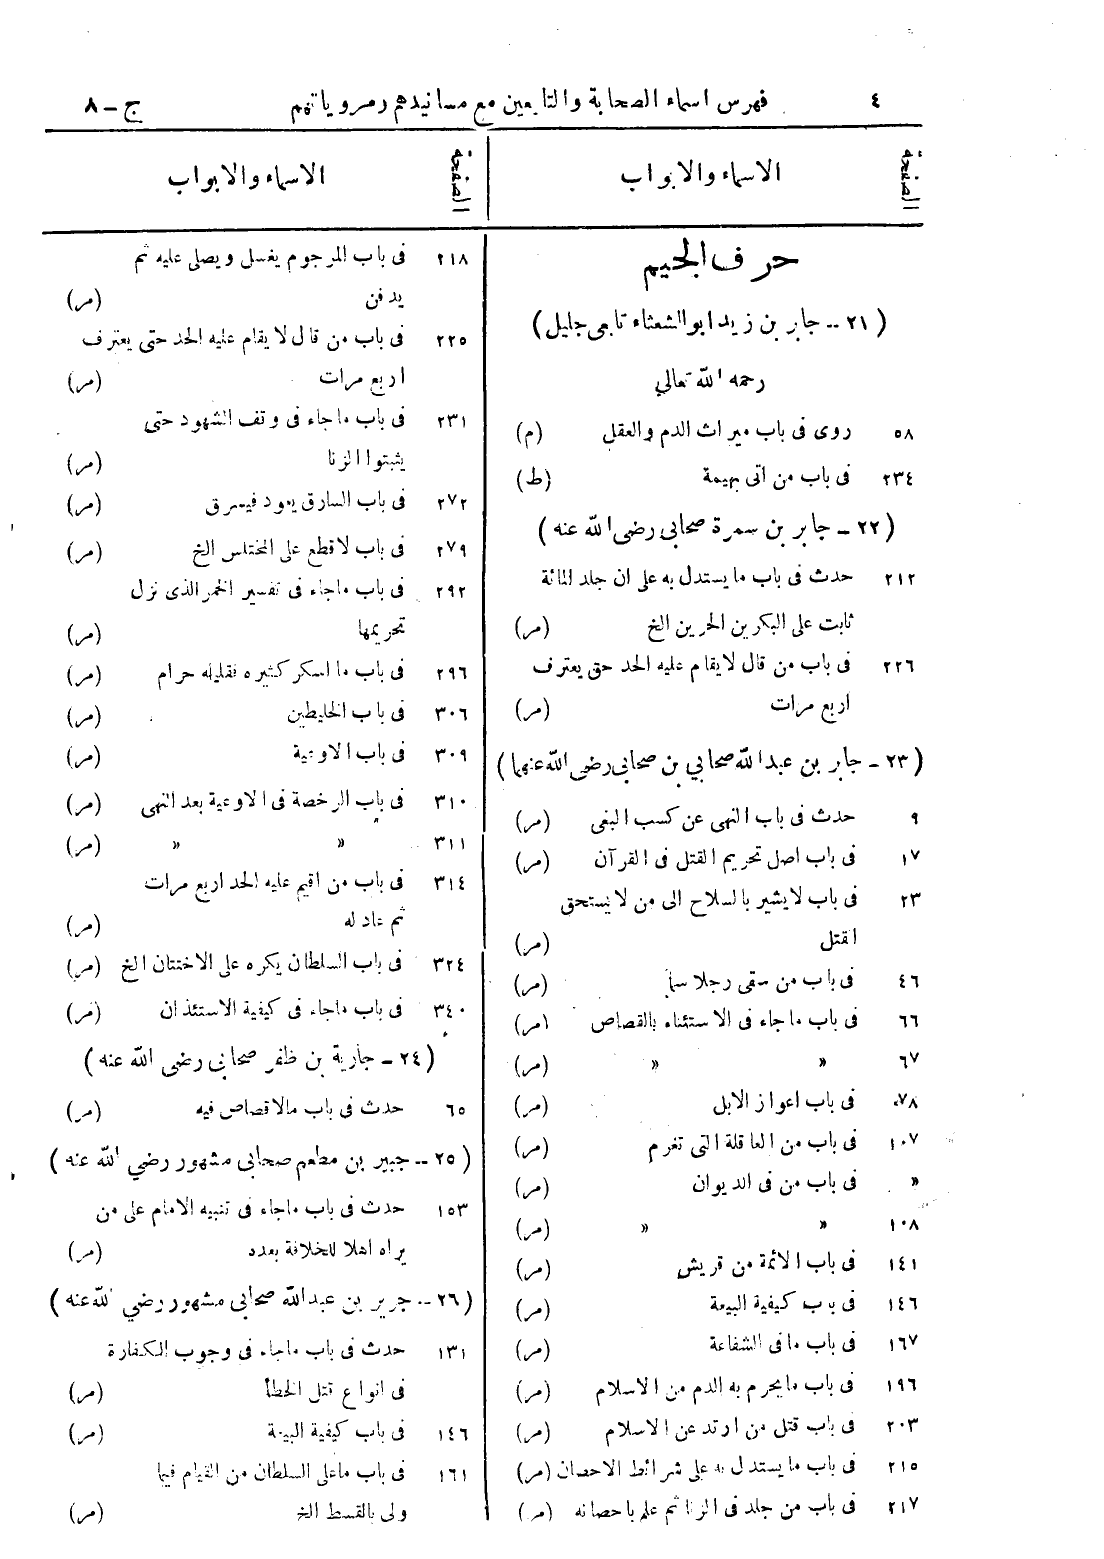 ٤ فهرس اسماء الصحابة والتابعين مع مسانيدهم ومروياتهم ج – ٨
الصفحة الاسماء والابواب
حرف الجيم
( ٢١ – جابر بن زيد ابو الشعثاء تابعى جليل )
رحمه الله تعالي
٥٨ روى فى باب ميراث الدم والعقل (م)
٢٣٤ فى باب من اتى بهيمة (ط)
( ٢٢ – جابر بن سمرة صحابى رضى الله عنه )
٢١٢ حدث فى باب ما يستدل به على ان جلد المائة
ثابت على البكرين الحرين الخ (مر)
٢٢٦ فى باب من قال لا يقام عليه الحد حتى يعترف
اربع مرات (مر)
( ٢٣ – جابر بن عبد الله صحابي بن صحابى رضى الله عنهما )
٩ حدث فى باب النهى عن كسب البغى (مر)
١٧ فى باب اصل تحريم القتل فى القرآن (مر)
٢٣ فى باب لا يشير بالسلاح الى من لا يستحق
القتل (مر)
٤٦ فى باب من سقى رجلا سما (مر)
٦٦ فى باب ما جاء فى الاستثناء بالقصاص (مر)
٦٧ » » (مر)
٧٨ فى باب اعواز الابل (مر)
١٠٧ فى باب من العاقلة التى تغرم (مر)
» فى باب من فى الديوان (مر)
١٠٨ » » (مر)
١٤١ فى باب الائمة من قريش (مر)
١٤٦ فى باب كيفية البيعة (مر)
١٦٧ فى باب ما فى الشفاعة (مر)
١٩٦ فى باب ما يحرم به الدم من الاسلام (مر)
٢٠٣ فى باب قتل من ارتد عن الاسلام (مر)
٢١٥ فى باب ما يستدل به على شرائط الاحصان (مر)
٢١٧ فى باب من جلد فى الزنا ثم علم باحصانه (مر)
الصفحة الاسماء والابواب
٢١٨ فى باب المرجوم يغسل ويصلى عليه ثم
يدفن (مر)
٢٢٥ فى باب من قال لا يقام عليه الحد حتى يعترف
اربع مرات (مر)
٢٣١ فى باب ماجاء فى وقف الشهود حتى
يثبتوا الزنا (مر)
٢٧٢ فى باب السارق يعود فيسرق (مر)
٢٧٩ فى باب لا قطع على المختلس الخ (مر)
٢٩٢ فى باب ماجاء فى تفسير الخمر الذى نزل
تحريمها (مر)
٢٩٦ فى باب ما اسكر كثيره فقليله حرام (مر)
٣٠٦ فى باب الخليطين (مر)
٣٠٩ فى باب الاوعية (مر)
٣١٠ فى باب الرخصة فى الاوعية بعد النهى (مر)
٣١١ » » (مر)
٣١٤ فى باب من اقيم عليه الحد اربع مرات
ثم عاد له (مر)
٣٢٤ فى باب السلطان يكره على الاختتان الخ (مر)
٣٤٠ فى باب ماجاء فى كيفية الاستئذان (مر)
( ٢٤ – جارية بن ظفر صحابي رضى الله عنه )
٦٥ حدث فى باب مالاقصاص فيه (مر)
( ٢٥ – جبير بن مطعم صحابى مشهور رضي الله عنه )
١٥٣ حدث فى باب ماجاء فى تنبيه الامام على من
يراه اهلا للخلافة بعده (مر)
( ٢٦ – جرير بن عبدالله صحابى مشهور رضي الله عنه )
١٣١ حدث فى باب ماجاء فى وجوب الكفارة
فى انواع قتل الخطأ (مر)
١٤٦ فى باب كيفية البيعة (مر)
١٦١ فى باب ماعلى السلطان من القيام فيما
ولى بالقسط الخ (مر)